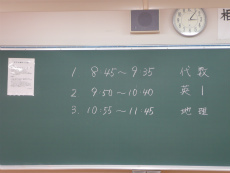 相
1 8:45～9:35 代数
2 9:50～10:40 英1
3 10:55～11:45 地理